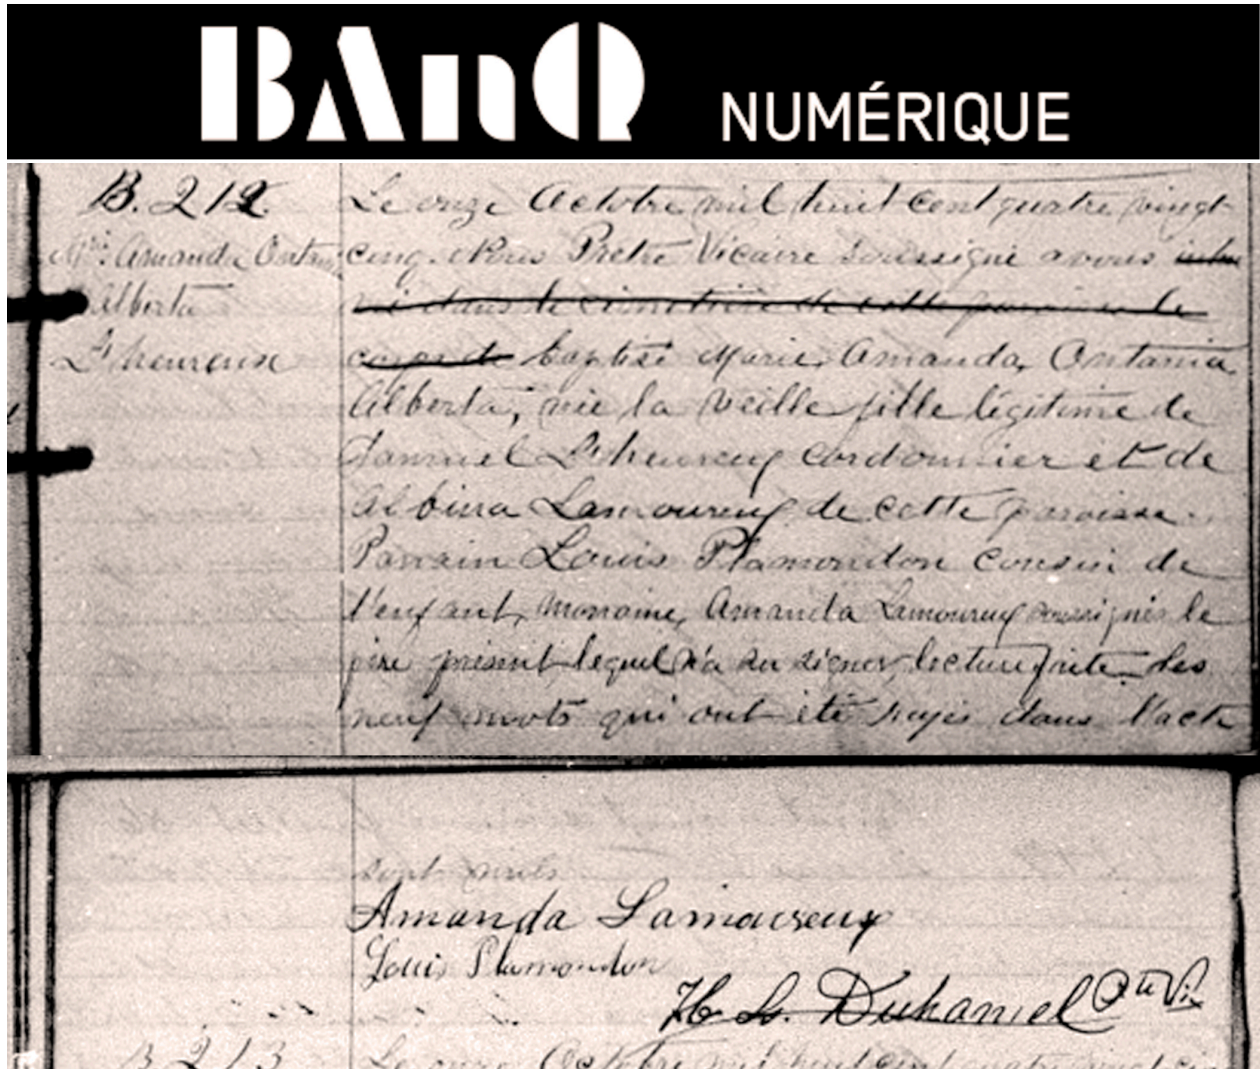 BAnQ NUMÉRIQUE
B. 212
Amanda
Alberta
L'heureux
Le onze Octobre mil huit cent quatre vingt
cinq. Nous Prêtre Vicaire soussigné avons inhu
mé dans le cimetière de cette paroisse le
corps de baptisé Marie, Amanda, Ontania
Alberta, née la veille fille légitime de
Samuel L'heureux cordonnier et de
Albina Lamoureux de cette paroisse.
Parrain Louis Plamondon cousin de
l'enfant, marraine, Amanda Lamoureux soussignés le
père présent lequel n'a su signer, lecture faite. Les
neuf mots qui ont été rayés dans l'acte
sont nuls
Amanda Lamoureux
Louis Plamondon
H. L. Duhamel Ptre Vic
B 213
Le onze Octobre mil huit cent quatre vingt cinq